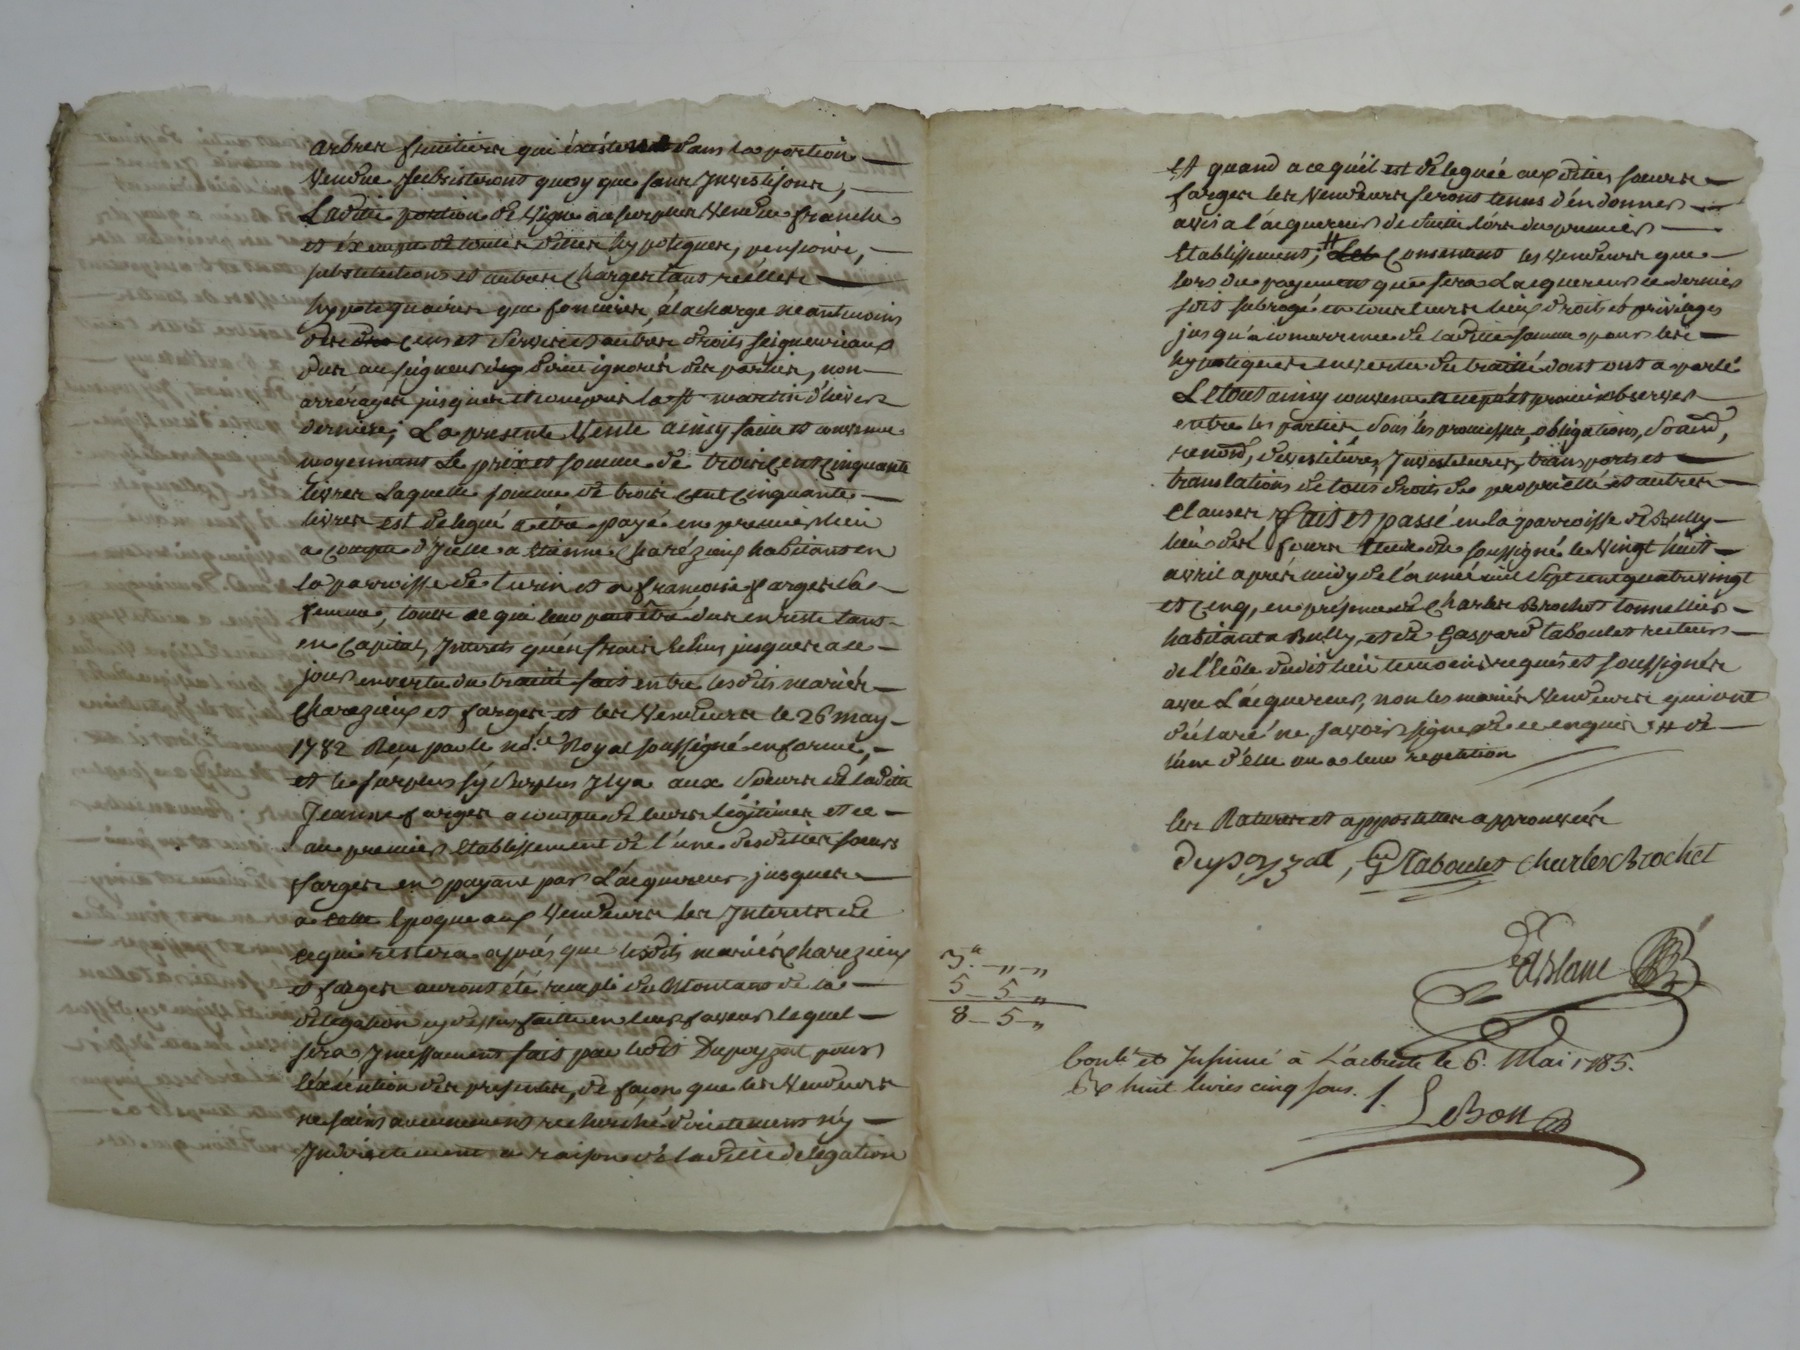 arbres fruitiers qui éxistent dans la portion
Vendue subsisteront quoy que sans Investison,
Laditte portion de Vigne au surplus Vendue franche
et éxempte de toutes dettes hypoteques, pensions,
substitutions et autres charges tant réelles
hypotequaires que foncieres, à la charge neantmoins
des cens et servis et autres droits seigneuriaux
dus au seigneur dis d'iceux ignorés des parties, non
arrérages jusques et compris la st martin d'hiver
derniere; La presente Vente ainsy faite et convenue
moyennant Le prix et somme de trois Cent Cinquante
livres Laquelle somme de trois Cent Cinquante
livres est deleguée a être payé en premier lieu
a compte d'Icelle a Etienne Charézieux habitant en
la parroisse de turin et a françoise farges sa
femme, toutes ce qui leur peut être dus en reste tant
en Capital, Interets qu'en frais Echus jusques a ce
jour en vertu du traitté fait entre lesdits mariés
Charezieux et farges et les Vendeurs le 26 may
1782 Reçu par le no.re Royal soussigné en forme,
et le surplus sy surplus Il y a aux Soeurs de laditte
Jeanne farges a compte de leurs légitimes et ce
au premier Etablissement de l'une desdittes soeurs
farges en payant par L'acquereur jusques
a cette Epoque aux Vendeurs les Interets de
ce qui restera après que lesdits mariés Charezieux
et farges auront été remplis du Montant de la
délegation cy dessus faitte en leur faveur lequel
sera Incessament fait par ledit Dupoyzat pour
l'éxecution des presentes, de façon que les Vendeurs
ne soint aucunement recherchés directement n'y
Indirectement a raison de laditte delegation
et quand a ce qu'il est deleguée auxdittes soeurs
farges les Vendeurs seront tenus d'en donner
avis a l'acquereur de suitte lors du premier
Etablissement; # Consentant les Vendeurs que
lors du payement que fera L'acquereur ce dernier
soit subrogé en tous leurs lieu, droits et privileges
jusqu'a concurrence de laditte somme pour les
hypoteques en vertu du traitté dont ont a parlé
Le tout ainsy convenu accepté et promis observer
entre les parties Sous les promesses, obligations, Soumd,
renond, devestitures, Investitures, transports et
translations de tous droits de propriété et autres
Clauses, fait et passé en la parroisse de Bully
lieu des fours Etude du soussigné le Vingt huit
avril après midy de l'année mil sept cent quatre vingt
et Cinq, en présence de Charles Brochet tonnellier
habitant a Bully, et de Gaspard taboulet recteur
de l'école dudit lieu temoins requis et soussignés
avec L'acquereur, non les mariés Vendeurs qui ont
déclaré ne savoir signer de ce enquis # de
l'une d'elle ou a leur repetition
les Ratures et appostilles approuvées
dupoyzat, G Taboulet Charles Brochet
3.# - " - "
5 - 5 - "
8 - 5 - "
Contl. et Insinué à L'arbresle le 6. Mai 1785.
Rx huit livres cinq sous. /.
LeBon